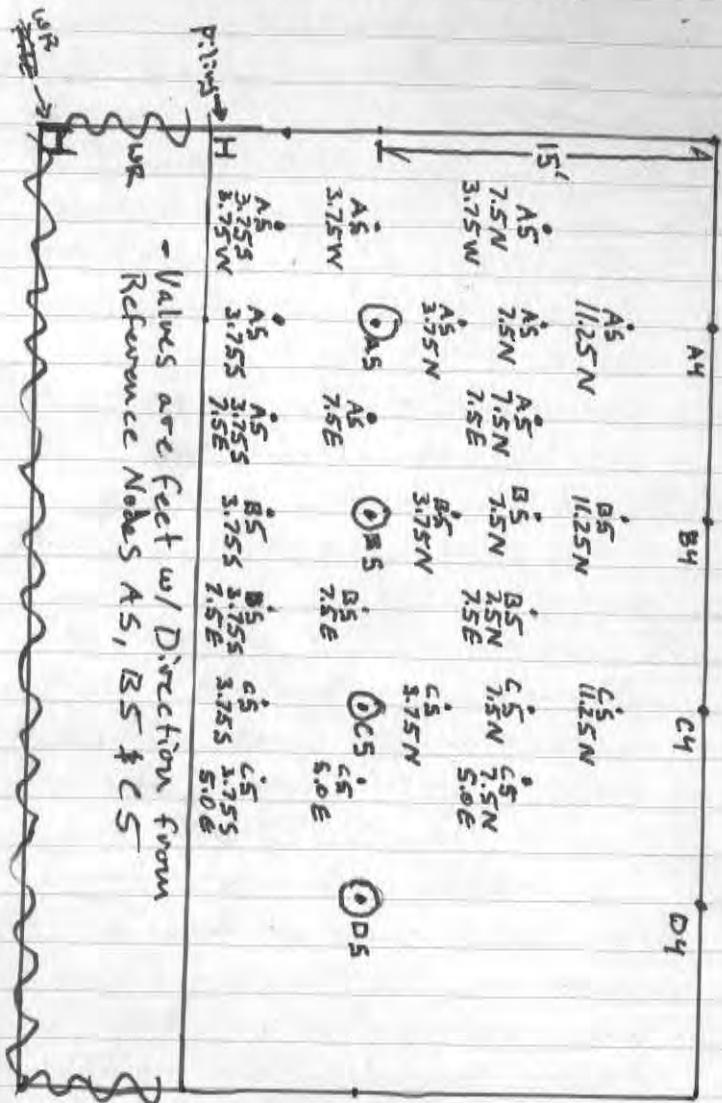 A4
B4
C4
D4
15'
A5
11.25N
B5
11.25N
C5
11.25N
A5
7.5N
3.75W
A5
7.5N
A5
7.5N
7.5E
B5
7.5N
B5
7.5N
7.5E
C5
7.5N
C5
7.5N
5.0E
A5
3.75N
B5
3.75N
C5
3.75N
A5
3.75W
A5
A5
7.5E
B5
B5
7.5E
C5
C5
5.0E
D5
A5
3.75S
3.75W
A5
3.75S
A5
3.75S
7.5E
B5
3.75S
B5
3.75S
7.5E
C5
3.75S
C5
3.75S
5.0E
piling → H
WR
- Values are feet w/ Direction from
Reference Nodes A5, B5 & C5
WR → H